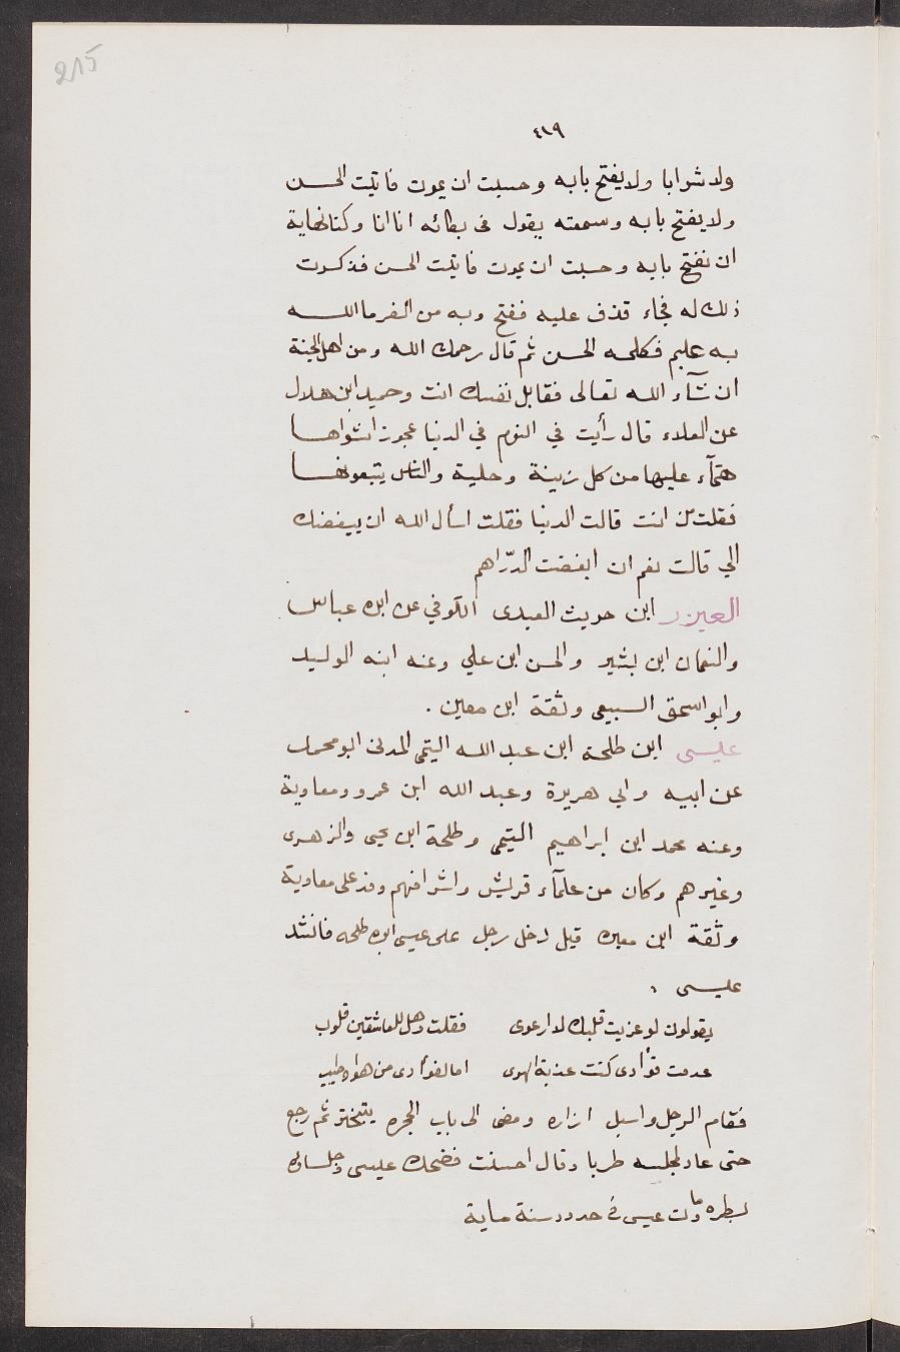 215
٤١٩
ولا شرابا ولا يفتح بابه وحسبت ان يموت فاتيت الحسن
ولا يفتح بابه وسمعته يقول فى بكائه انا انا وكنا نهاية
ان نفتح بابه وحسبت ان يموت فاتيت الحسن فذكرت
ذلك له فجاء قذف عليه ففتح وبه من الفرما الله
به عليم فكلمه الحسن ثم قال رحمك الله ومن اهل الجنة
ان شآء الله تعالى فقابل نفسك انت وحميد ابن هلال
عن العلاء قال رأيت في النوم في الدنيا عجوز اشواها
هتمآء عليها من كل زينة وحلية والناس يتبعونها
فقلت من انت قالت الدنيا فقلت اسأل الله ان يبغضك
الي قالت نعم ان ابغضت الدّراهم
العيزر ابن حريث العبدى الكوفي عن ابن عباس
والنعمان ابن بشير والحسن ابن علي وعنه ابنه الوليد
وابو اسحق السبيعى وثقة ابن معين .
عليسى ابن طلحة ابن عبد الله التيمى المدنى ابو محمد
عن ابيه وابي هريرة وعبد الله ابن عمرو ومعاوية
وعنه محمد ابن ابراهيم التيمى وطلحة ابن يحيى والزهرى
وغيرهم وكان من علمآء قريش واشرافهم وفد على معاوية
وثقة ابن معين قيل دخل رجل على عيسى ابن طلحه فانشد
عليسى ،
يقولون لو عزيت قلبك لارعوى فقلت وهل للعاشقين قلوب
عدمت فؤادى كنت عذبة الهوى اما لفؤادى من هواه طبيب
فقام الرجل واسبل ازاره ومضى الى باب الحجره يتبختر ثم رجع
حتى عاد لمجلسه طربا وقال احسنت فضحك عليسى وجلساوه
لطره ومات عيسى فى حدود سنة ماية